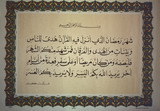 شهر رمضان الذي انزل فيه القرآن هدى للناس
وبينات من الهدى والفرقان فمن شهد منكم الشهر
فليصمه ومن كان مريضا او على سفر فعدة من ايام
اخر يريد الله بكم اليسر ولا يريد بكم العسر